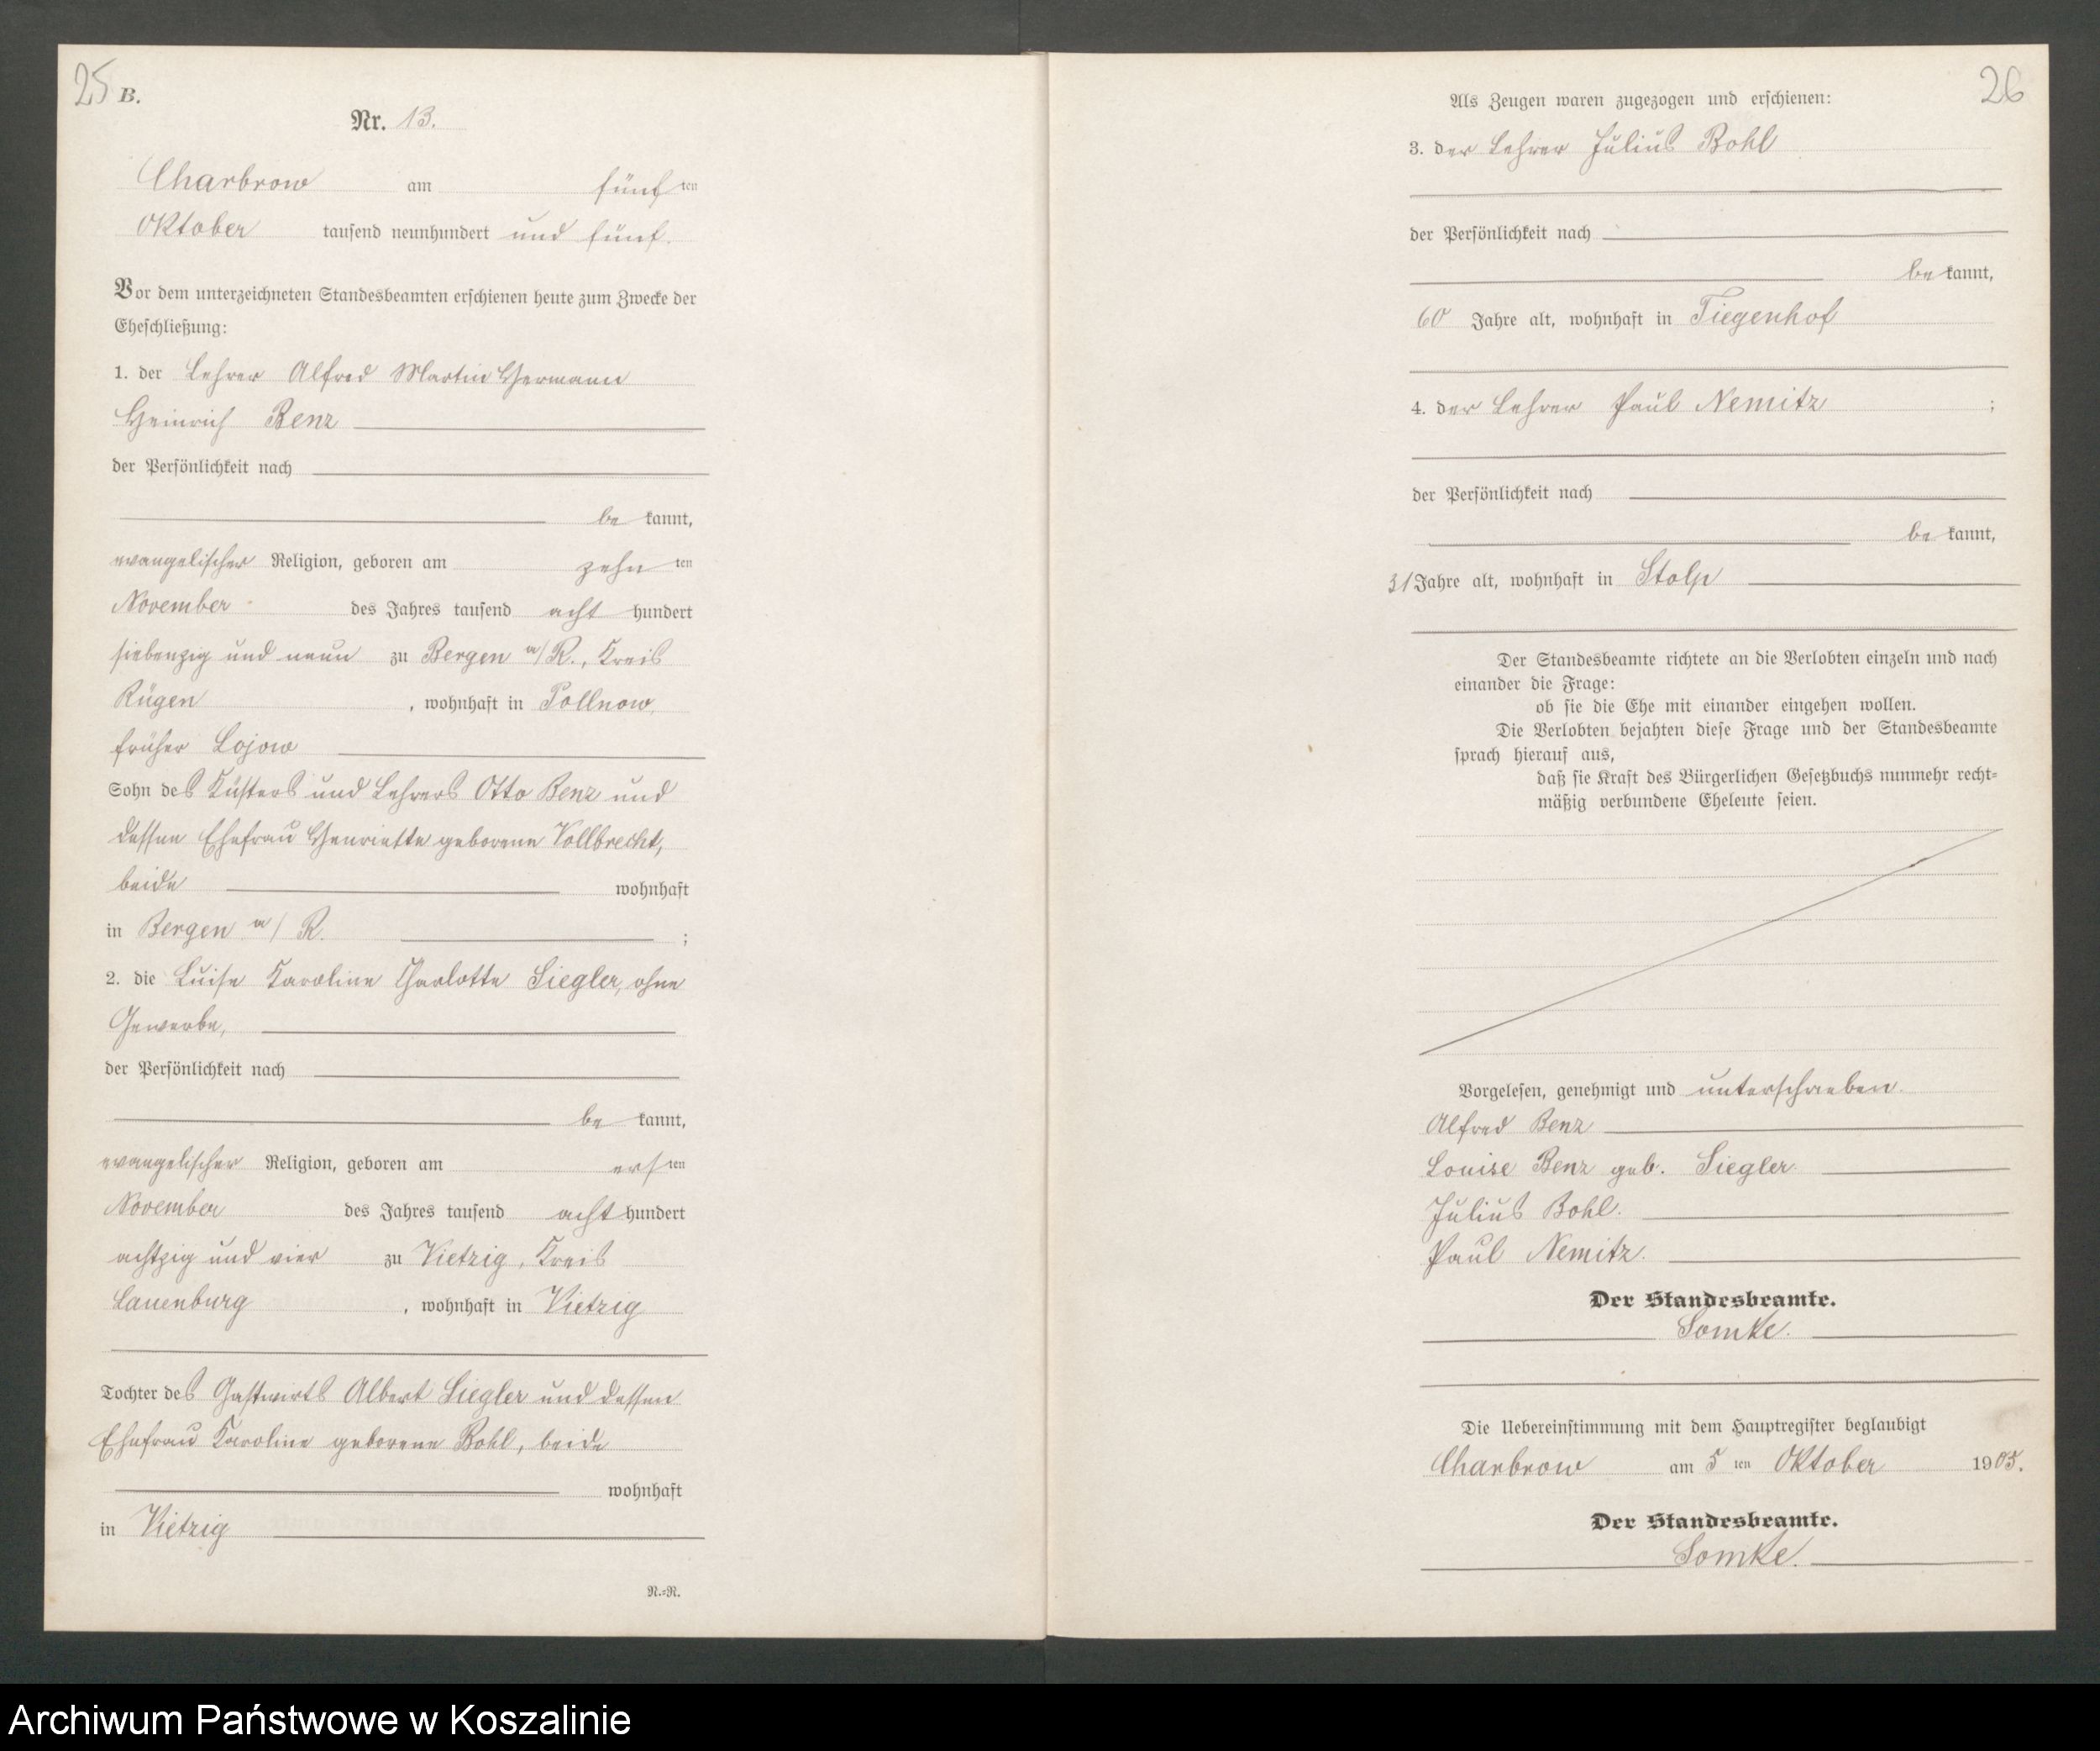 25 B.
Nr. 13.
Charbrow am fünften
Oktober tausend neunhundert und fünf.
Vor dem unterzeichneten Standesbeamten erschienen heute zum Zwecke der
Eheschließung:
1. der Lehrer Alfred Martin Hermann
Heinrich Benz
der Persönlichkeit nach
be kannt,
evangelischer Religion, geboren am zehn ten
November des Jahres tausend acht hundert
siebenzig und neun zu Bergen a/R., Kreis
Rügen, wohnhaft in Pollnow,
früher Lojow
Sohn des Küsters und Lehrers Otto Benz und
dessen Ehefrau Henriette geborene Vollbrecht,
beide wohnhaft
in Bergen a/R. ;
2. die Luise Karoline Charlotte Siegler, ohne
Gewerbe,
der Persönlichkeit nach
be kannt,
evangelischer Religion, geboren am ersten
November des Jahres tausend acht hundert
achtzig und vier zu Vietzig, Kreis
Lauenburg, wohnhaft in Vietzig
Tochter des Gastwirts Albert Siegler und dessen
Ehefrau Karoline geborene Bohl, beide
wohnhaft
in Vietzig
N.=N.
26
Als Zeugen waren zugezogen und erschienen:
3. der Lehrer Julius Bohl
der Persönlichkeit nach
be kannt,
60 Jahre alt, wohnhaft in Tiegenhof
4. der Lehrer Paul Nemitz ;
der Persönlichkeit nach
be kannt,
31 Jahre alt, wohnhaft in Stolp
Der Standesbeamte richtete an die Verlobten einzeln und nach
einander die Frage:
ob sie die Ehe mit einander eingehen wollen.
Die Verlobten bejahten diese Frage und der Standesbeamte
sprach hierauf aus,
daß sie Kraft des Bürgerlichen Gesetzbuchs nunmehr recht=
mäßig verbundene Eheleute seien.
Vorgelesen, genehmigt und unterschrieben.
Alfred Benz
Louise Benz geb. Siegler.
Julius Bohl.
Paul Nemitz.
Der Standesbeamte.
Somke.
Die Uebereinstimmung mit dem Hauptregister beglaubigt
Charbrow am 5 ten Oktober 1905.
Der Standesbeamte.
Somke.
Archiwum Państwowe w Koszalinie